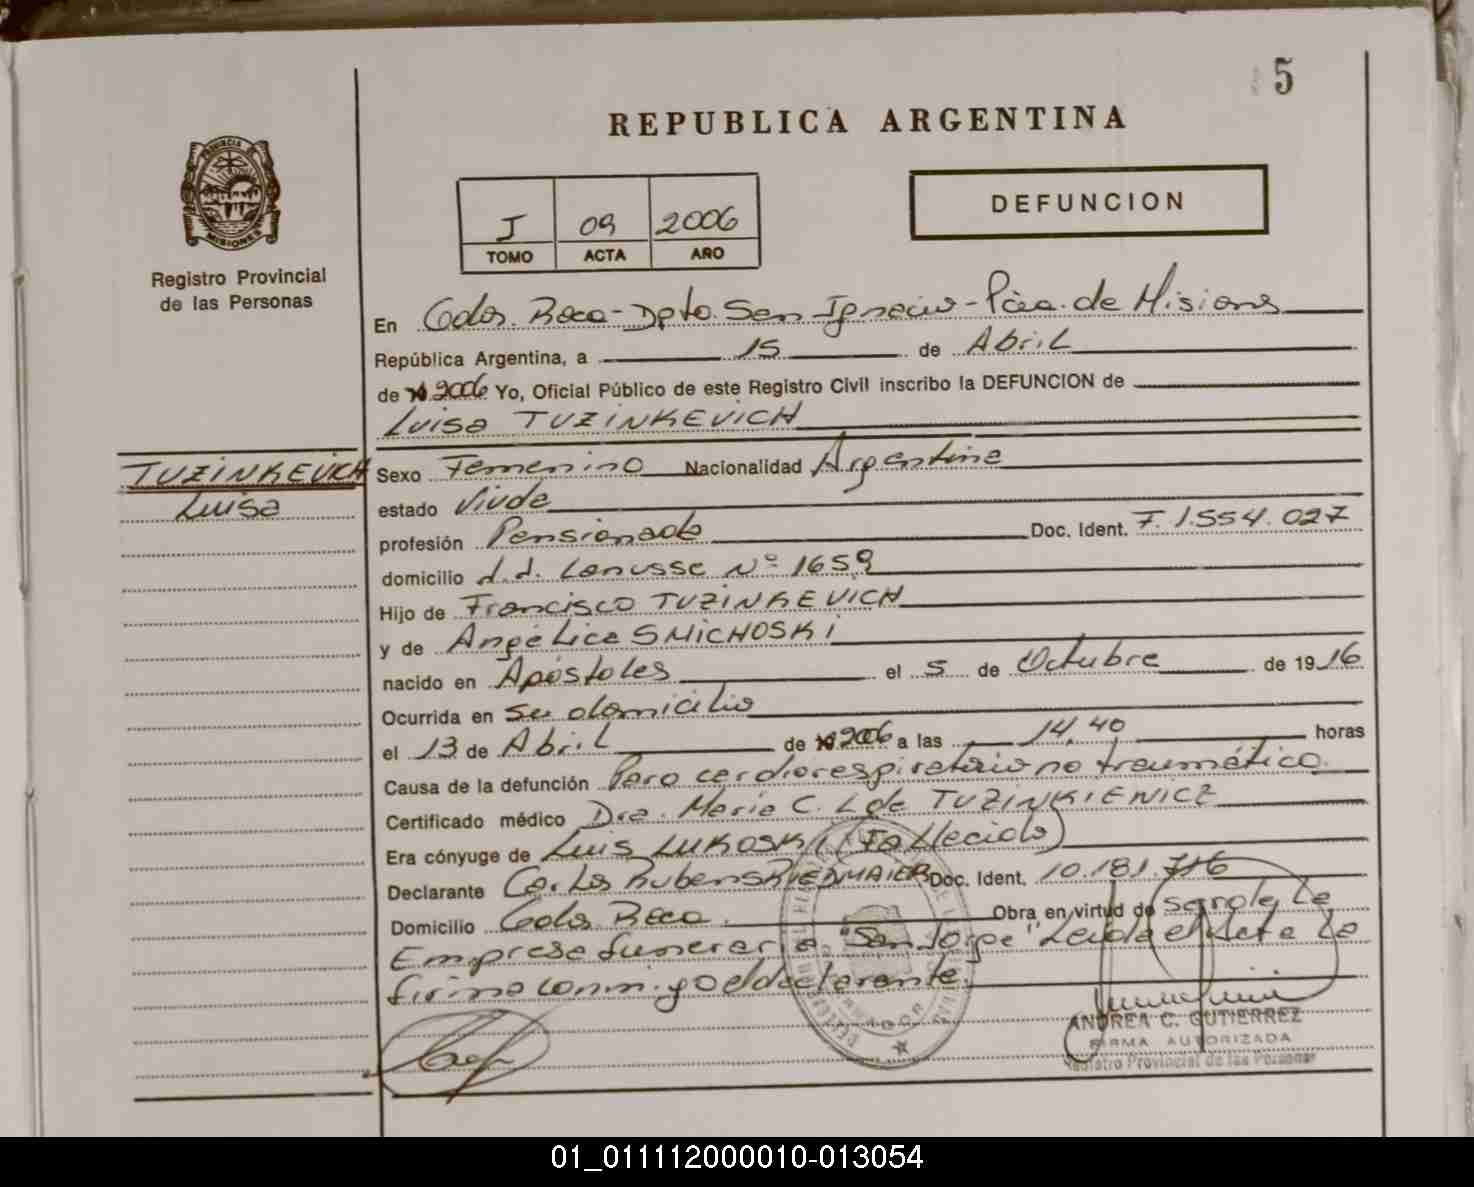 5
REPUBLICA ARGENTINA
PROVINCIA DE
MISIONES
Registro Provincial
de las Personas
DEFUNCION
I 09 2006
TOMO ACTA AÑO
En Gdor. Roca - Dpto. San Ignacio - Pcia. de Misiones
República Argentina, a 15 de Abril
de 2006 Yo, Oficial Público de este Registro Civil inscribo la DEFUNCION de
Luisa TUZINKEVICH
TUZINKEVICH
Luisa
Sexo Femenino Nacionalidad Argentina
estado Viuda
profesión Pensionada Doc. Ident. F. 1.554.027
domicilio J.J. Lanusse Nº 1659
Hijo de Francisco TUZINKEVICH
y de Angélica SMICHOSKI
nacido en Apóstoles el 5 de Octubre de 1916
Ocurrida en su domicilio
el 13 de Abril de 2006 a las 14,40 horas
Causa de la defunción Paro cardiorespiratorio no traumático.
Certificado médico Dra. Maria C. L de TUZINKIEWICZ
Era cónyuge de Luis LUKOSKI (Fallecido)
Declarante Carlos Ruben RIEDMAIER Doc. Ident. 10.181.716
Domicilio Gdor. Roca. Obra en virtud de
Empresa funeraria "San Jorge" Leida el Acta la
firma conmigo el declarante.
ANDREA C. GUTIERREZ
FIRMA AUTORIZADA
Registro Provincial de las Personas
01_011112000010-013054